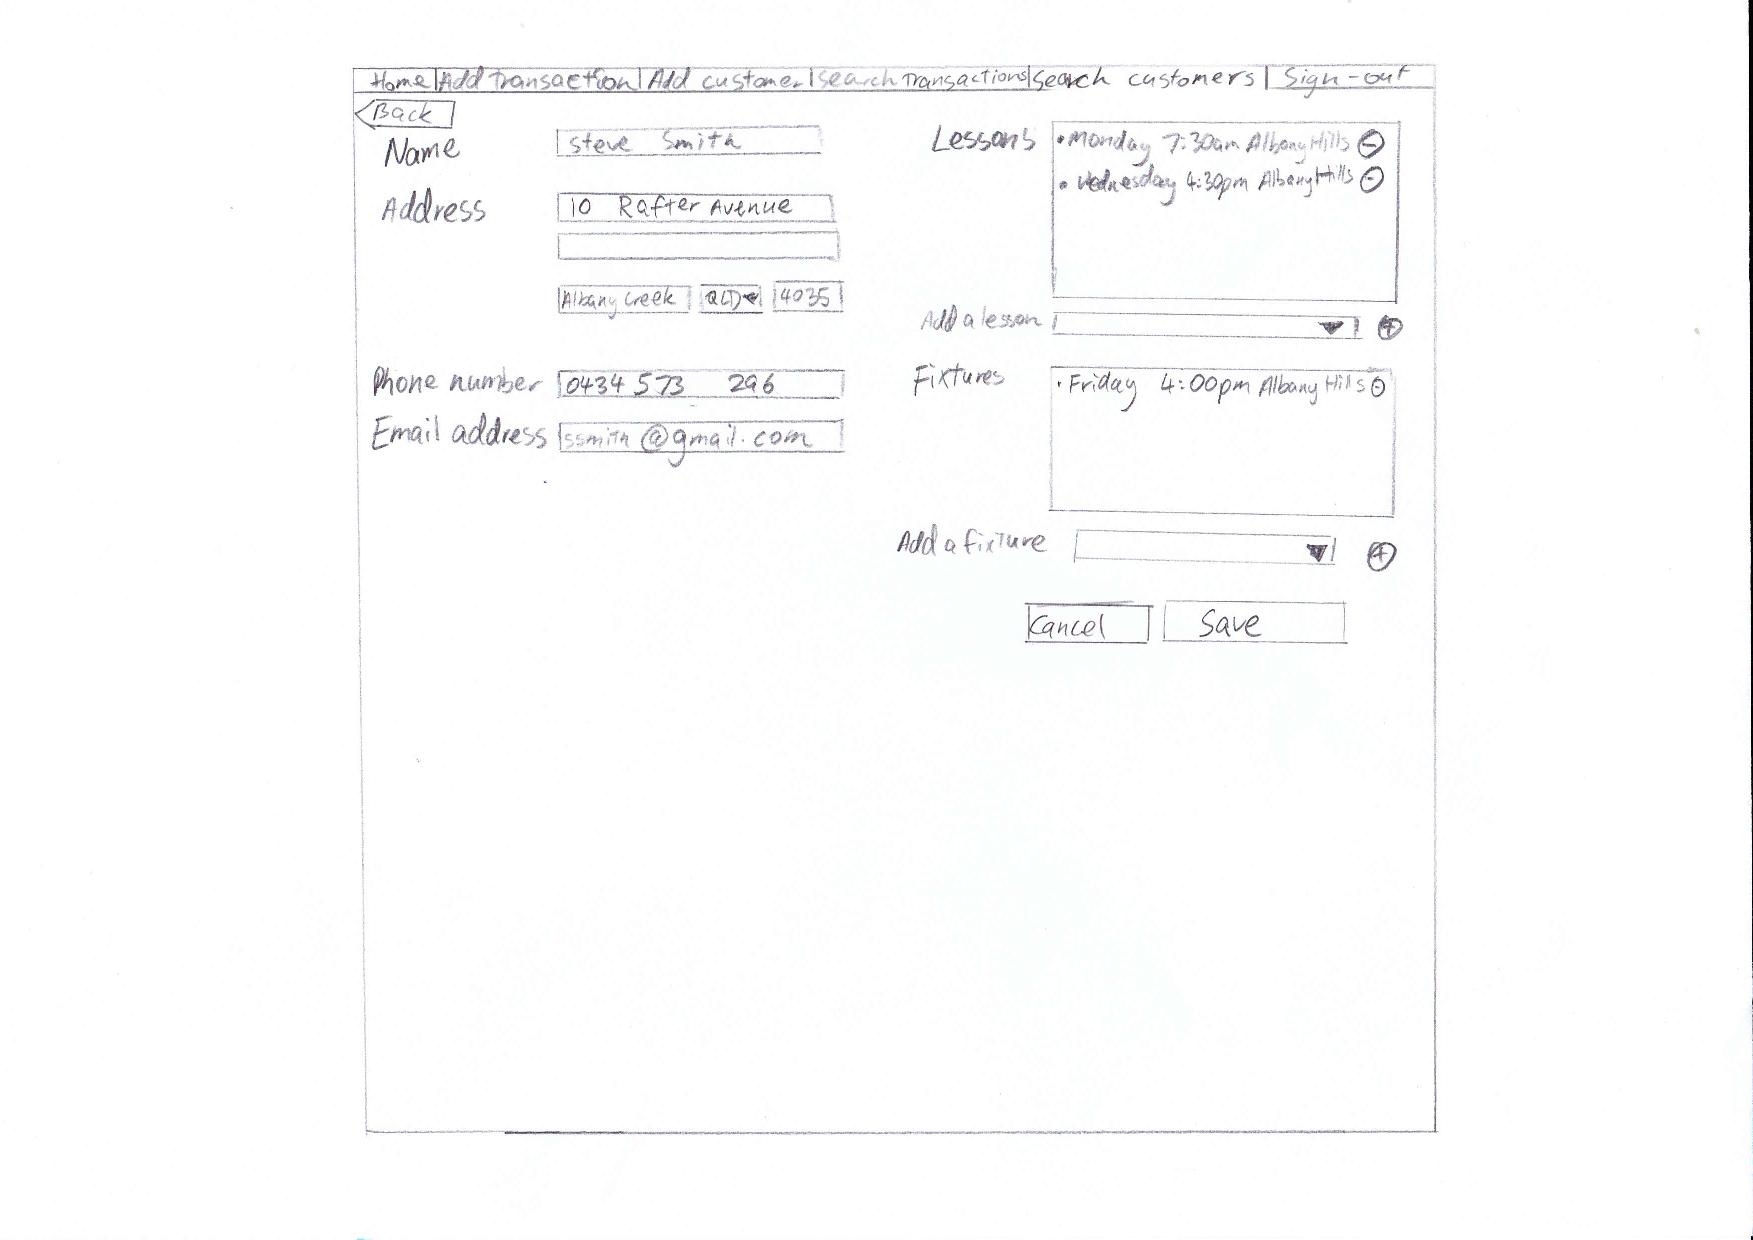 Home Add Transaction Add customer Search Transactions Search customers Sign-out
Back
Name Steve Smith
Address 10 Rafter Avenue
Albany Creek QLD 4035
Phone number 0434 573 296
Email address ssmith@gmail.com
Lessons
• Monday 7:30am Albany Hills
• Wednesday 4:30pm Albany Hills
Add a lesson
Fixtures
• Friday 4:00pm Albany Hills
Add a fixture
Cancel Save